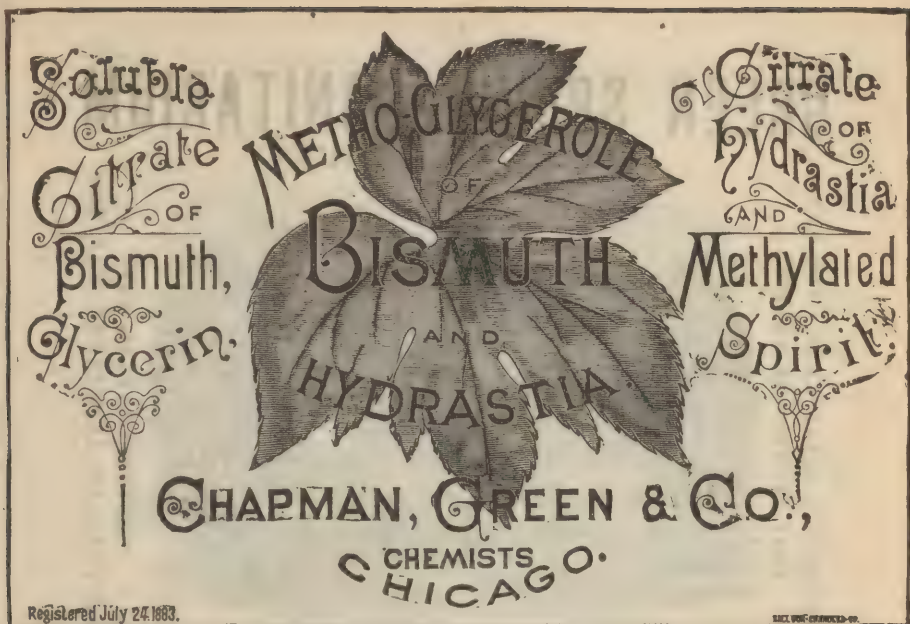 Soluble
Citrate
OF
Bismuth,
Glycerin,
METHO-GLYCEROLE
OF
BISMUTH
AND
HYDRASTIA.
Citrate
OF
hydrastia
AND
Methylated
Spirit.
CHAPMAN, GREEN & CO.,
CHEMISTS
CHICAGO.
Registered July 24. 1883.